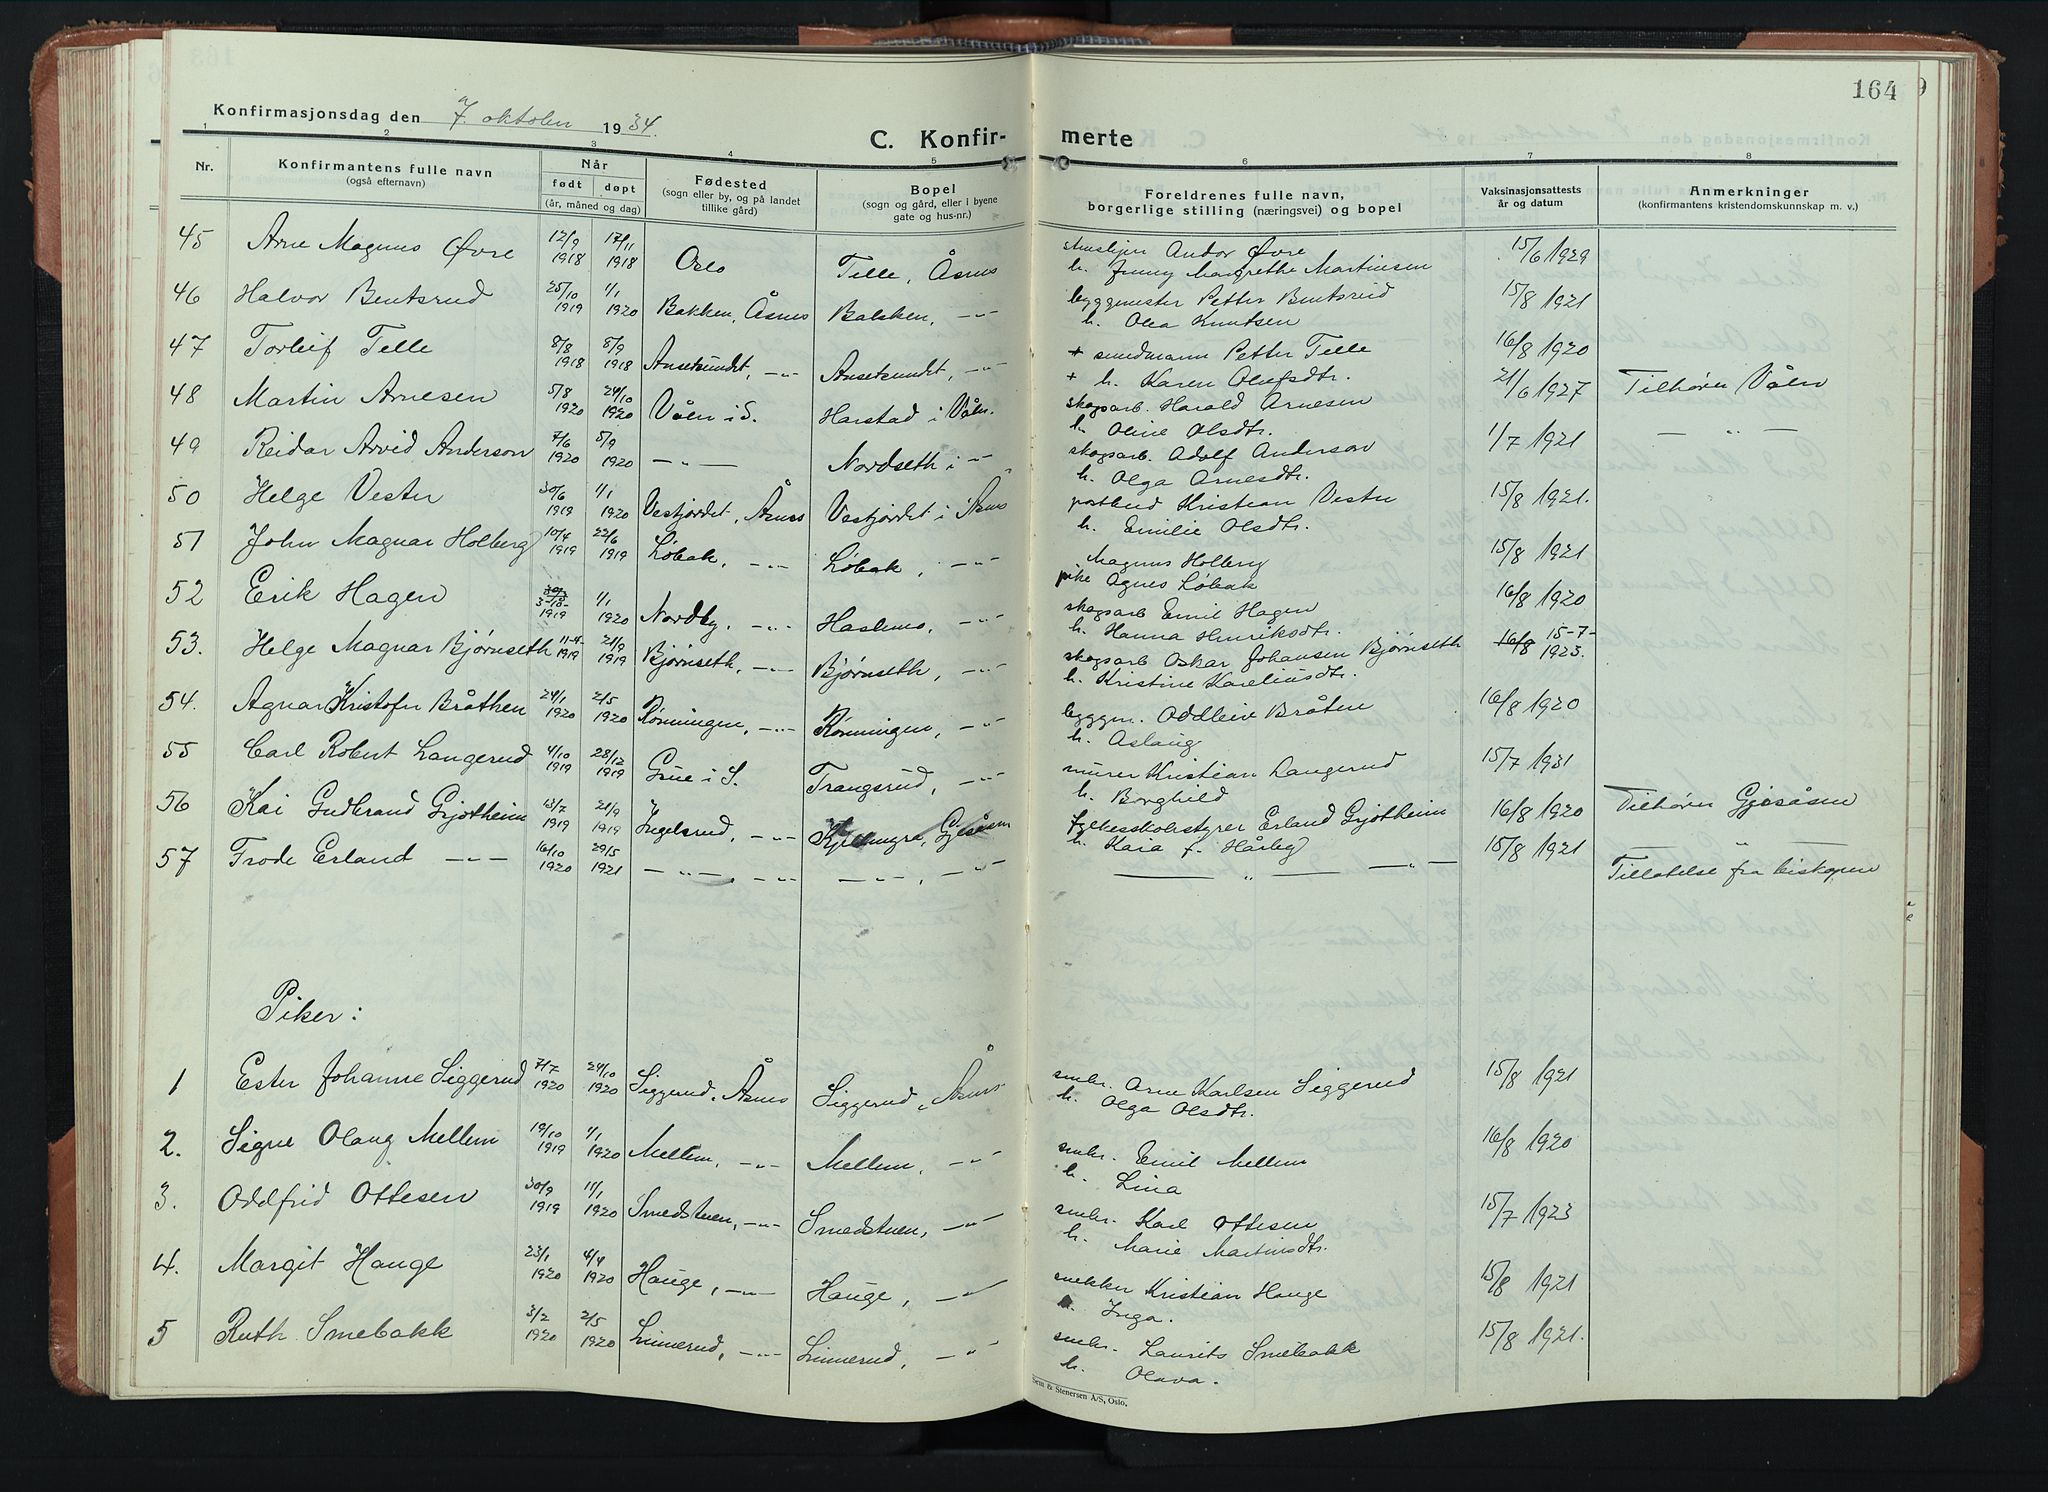 164
Konfirmasjonsdag den 7. oktober 1934.
C. Konfir- merte
1 2 3 4 5 6 7 8
Nr. Konfirmantens fulle navn (også efternavn) Når født døpt (år, måned og dag) Fødested (sogn eller by, og på landet tillike gård) Bopel (sogn og gård, eller i byene gate og hus-nr.) Foreldrenes fulle navn, borgerlige stilling (næringsvei) og bopel Vaksinasjonsattests år og datum Anmerkninger (konfirmantens kristendomskunnskap m. v.)
45 Arne Magnus Øvre 12/9 1918 17/11 1918 Oslo Telle, Åsnes Andor Øvre 15/6 1929
h. Jenny Margrethe Martinsen
46 Halvor Bentsrud 25/10 1919 1/1 1920 Bakken, Åsnes Bakken, -"- byggmester Petter Bentsrud 15/8 1921
h. Olea Knutsen
47 Torleif Telle 8/8 1918 8/9 1918 Arnetsundet, -"- Arnetsundet, -"- + Petter Telle 16/8 1920
+ h. Karen Olufsdtr.
48 Martin Arnesen 5/8 1920 24/10 1920 Våler i S. Harstad i Våler. skogsarb. Harald Arnesen 21/6 1927 Tilhører Våler
h. Oline Olsdtr.
49 Reidar Arvid Anderson 7/6 1920 5/9 1920 -"- Nordseth i -"- skogsarb. Adolf Anderson 1/7 1921 -"-
h. Olga Arnesdtr.
50 Helge Vester 30/6 1919 1/1 1920 Vestjordet, Åsnes Vestjordet i Åsnes postbud Kristian Vester 15/8 1921.
h. Emilie Olsdtr.
51 John Magnar Holberg 10/4 1919 22/6 1919 Løbak, -"- Løbak, -"- Magnus Holberg 15/8 1921
pike Agnes Løbak
52 Erik Hagen 3-10- 1919 1/1 1920 Nordby, -"- Haslemo, -"- skogsarb Emil Hagen 16/8 1920
h. Hanna Henriksdtr.
53. Helge Magnar Bjørnseth 11-4- 1919 21/9 1919 Bjørnseth, -"- Bjørnseth, -"- skogsarb Oskar Johansen Bjørnseth 16/8 15-7- 1923.
h. Kristine Kareliusdtr.
54. Agnar Kristofer Bråthen 24/1 1920 2/5 1920 Rønningen, -"- Rønningen, -"- byggm. Oddleiv Bråten 16/8 1920
h. Aslaug
55 Carl Robert Langerud 4/10 1919 28/12 1919 Grue i S. Trangsrud, -"- murer Kristian Langerud 15/7 1931
h. Borghild
56 Kai Gudbrand Grjotheim 13/7 1919 21/9 1919 Ingelsrud, -"- Kjelmyra, Gjesåsen folkeskolestyrer Erland Grjotheim 16/8 1920 Tilhører Gjesåsen
h. Kaia f. Hårby
57 Frode Erland -"- 16/10 1920 29/5 1921 -"-, -"- -"-, -"- -"- 15/8 1921 -"-
Tillatelse fra biskopen
Piker:
1 Ester Johanne Siggerud 7/7 1920 24/10 1920 Siggerud, Åsnes Siggerud, Åsnes smbr. Arne Karlsen Siggerud 15/8 1921
h. Olga Olsdtr.
2. Signe Olaug Mellem 19/10 1919 1/1 1920 Mellem, -"- Mellem, -"- smbr. Emil Mellem 16/8 1920
h. Lina
3. Oddfrid Ottesen 30/9 1919 11/1 1920 Smedstuen, -"- Smedstuen, -"- smbr. Karl Ottesen 15/7 1923
h. Marie Martinsdtr.
4. Margit Hauge 23/1 1920 4/4 1920 Hauge, -"- Hauge, -"- snekker Kristian Hauge 15/8 1921
h. Inga.
5 Ruth Smebakk 3/2 1920 2/5 1920 Linnerud, -"- Linnerud, -"- smbr. Laurits Smebakk 15/8 1921.
h. Olava.
Sem & Stenersen A/S, Oslo.